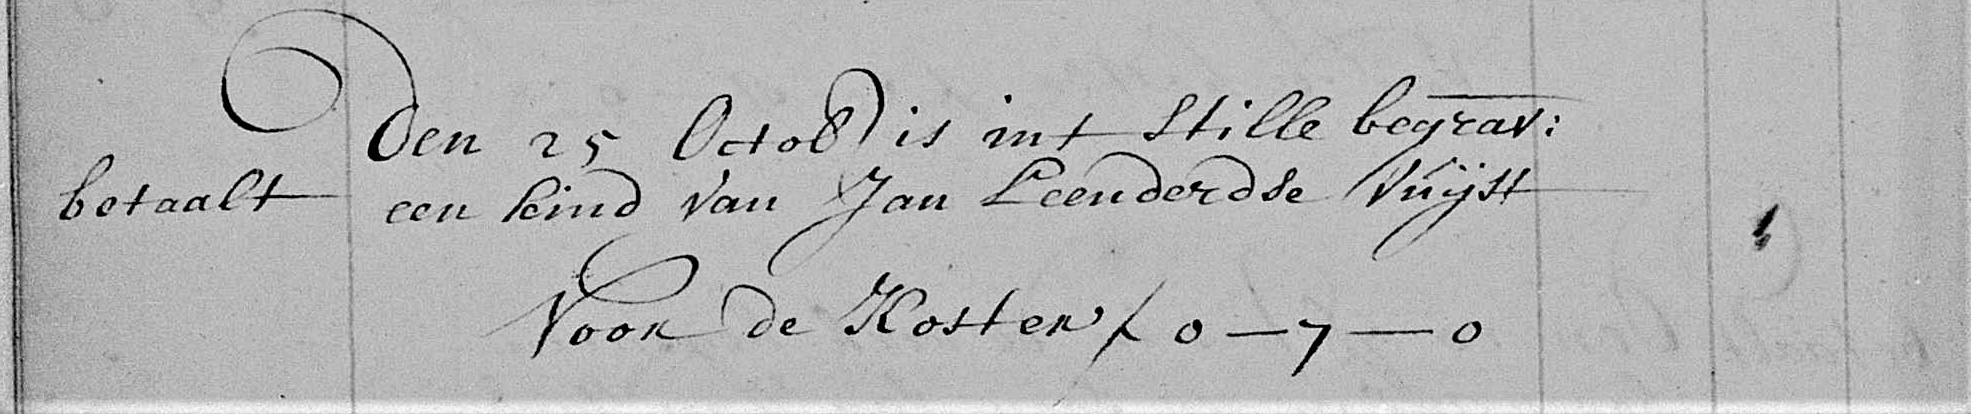 Den 25 Octob) is int Stille begrav:
betaalt een kind van Jan Leenderdse Vuijst
Voor de Koster ƒ 0 — 7 — 0